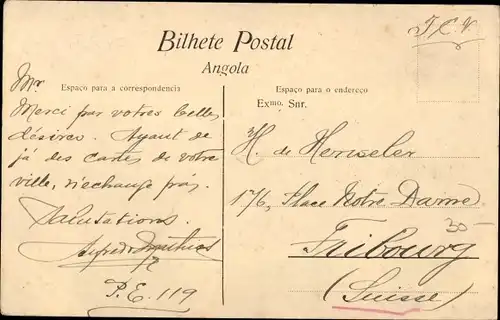 T.C.V.
Bilhete Postal
Angola
Espaço para a correspondencia
Espaço para o endereço
Mr.
Merci par votres belles
désires. Ayant de
já des cartes de votre
ville, n'echange pás.
Salutations.
Alfredo
P.E. 119
Exmo. Snr.
H. de Henseler
176, Place Notre Dame
30-
Fribourg
(Suisse)